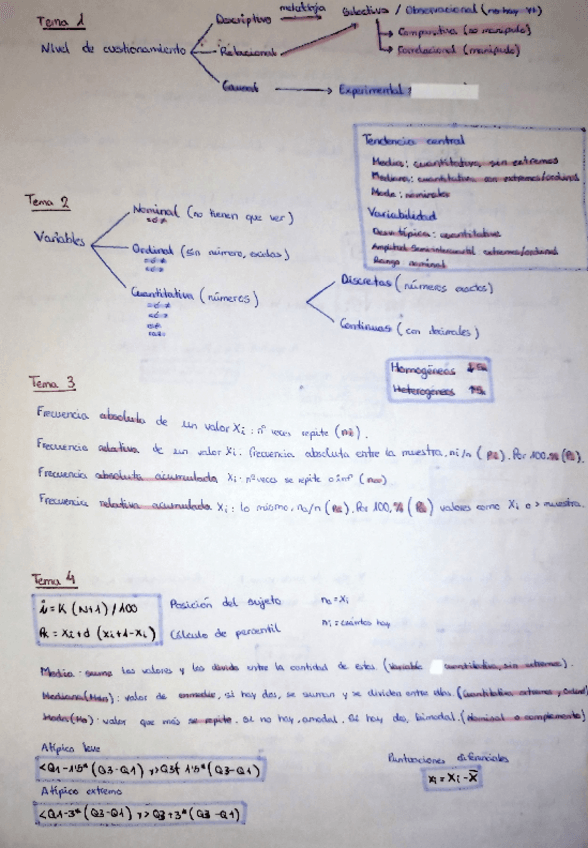 Tema 1
Nivel de cuestionamiento
Descriptivo
metodología Selectiva / Observacional (no hay VI)
Relacional
Comparativa (no manipulo)
(manipulo)
Causal
Experimental
Tendencia central
Media: cuantitativa, sin extremos
Mediana: cuantitativa con extremos/ordinal
Moda: nominales
Variabilidad
Desv. típica: cuantitativa
Amplitud Semiintercuartil extremos/ordinal
Rango nominal
Tema 2
Variables
Nominal (no tienen que ver)
Ordinal (sin número, escalas)
Cuantitativa (números)
Discretas (números exactos)
Continuas (con decimales)
Homogéneas ↓Sx
Heterogéneas ↑Sx
Tema 3
Frecuencia absoluta de un valor Xi: nº veces repite (ni).
Frecuencia relativa de un valor Xi. Frecuencia absoluta entre la muestra, ni/n (Pi). Por 100.% (Pi).
Frecuencia absoluta acumulada Xi. nº veces se repite o infº (na)
Frecuencia relativa acumulada Xi: lo mismo, na/n (Pa). Por 100, % (Pa) valores como Xi o > muestra.
Tema 4
i = K (N+1) / 100
Posición del sujeto
na = Xi
Pk = Xi + d (Xi+1 - Xi)
Cálculo de percentil
ni = cuantos hay
Media: suma los valores y los divido entre la cantidad de estos. (Variable cuantitativa, sin extremos).
Mediana (Mdn): valor de enmedio, si hay dos, se suman y se dividen entre ellos. (Cuantitativa extremos, Ordinal)
Moda (Mo): valor que más se repite. Si no hay, amodal. Si hay dos, bimodal. (Nominal o complemento)
Atípico leve
<Q1-1'5*(Q3-Q1) y >Q3+1'5*(Q3-Q1)
Atípico extremo
<Q1-3*(Q3-Q1) y >Q3+3*(Q3-Q1)
Puntuaciones diferenciales
xi = Xi - X̄